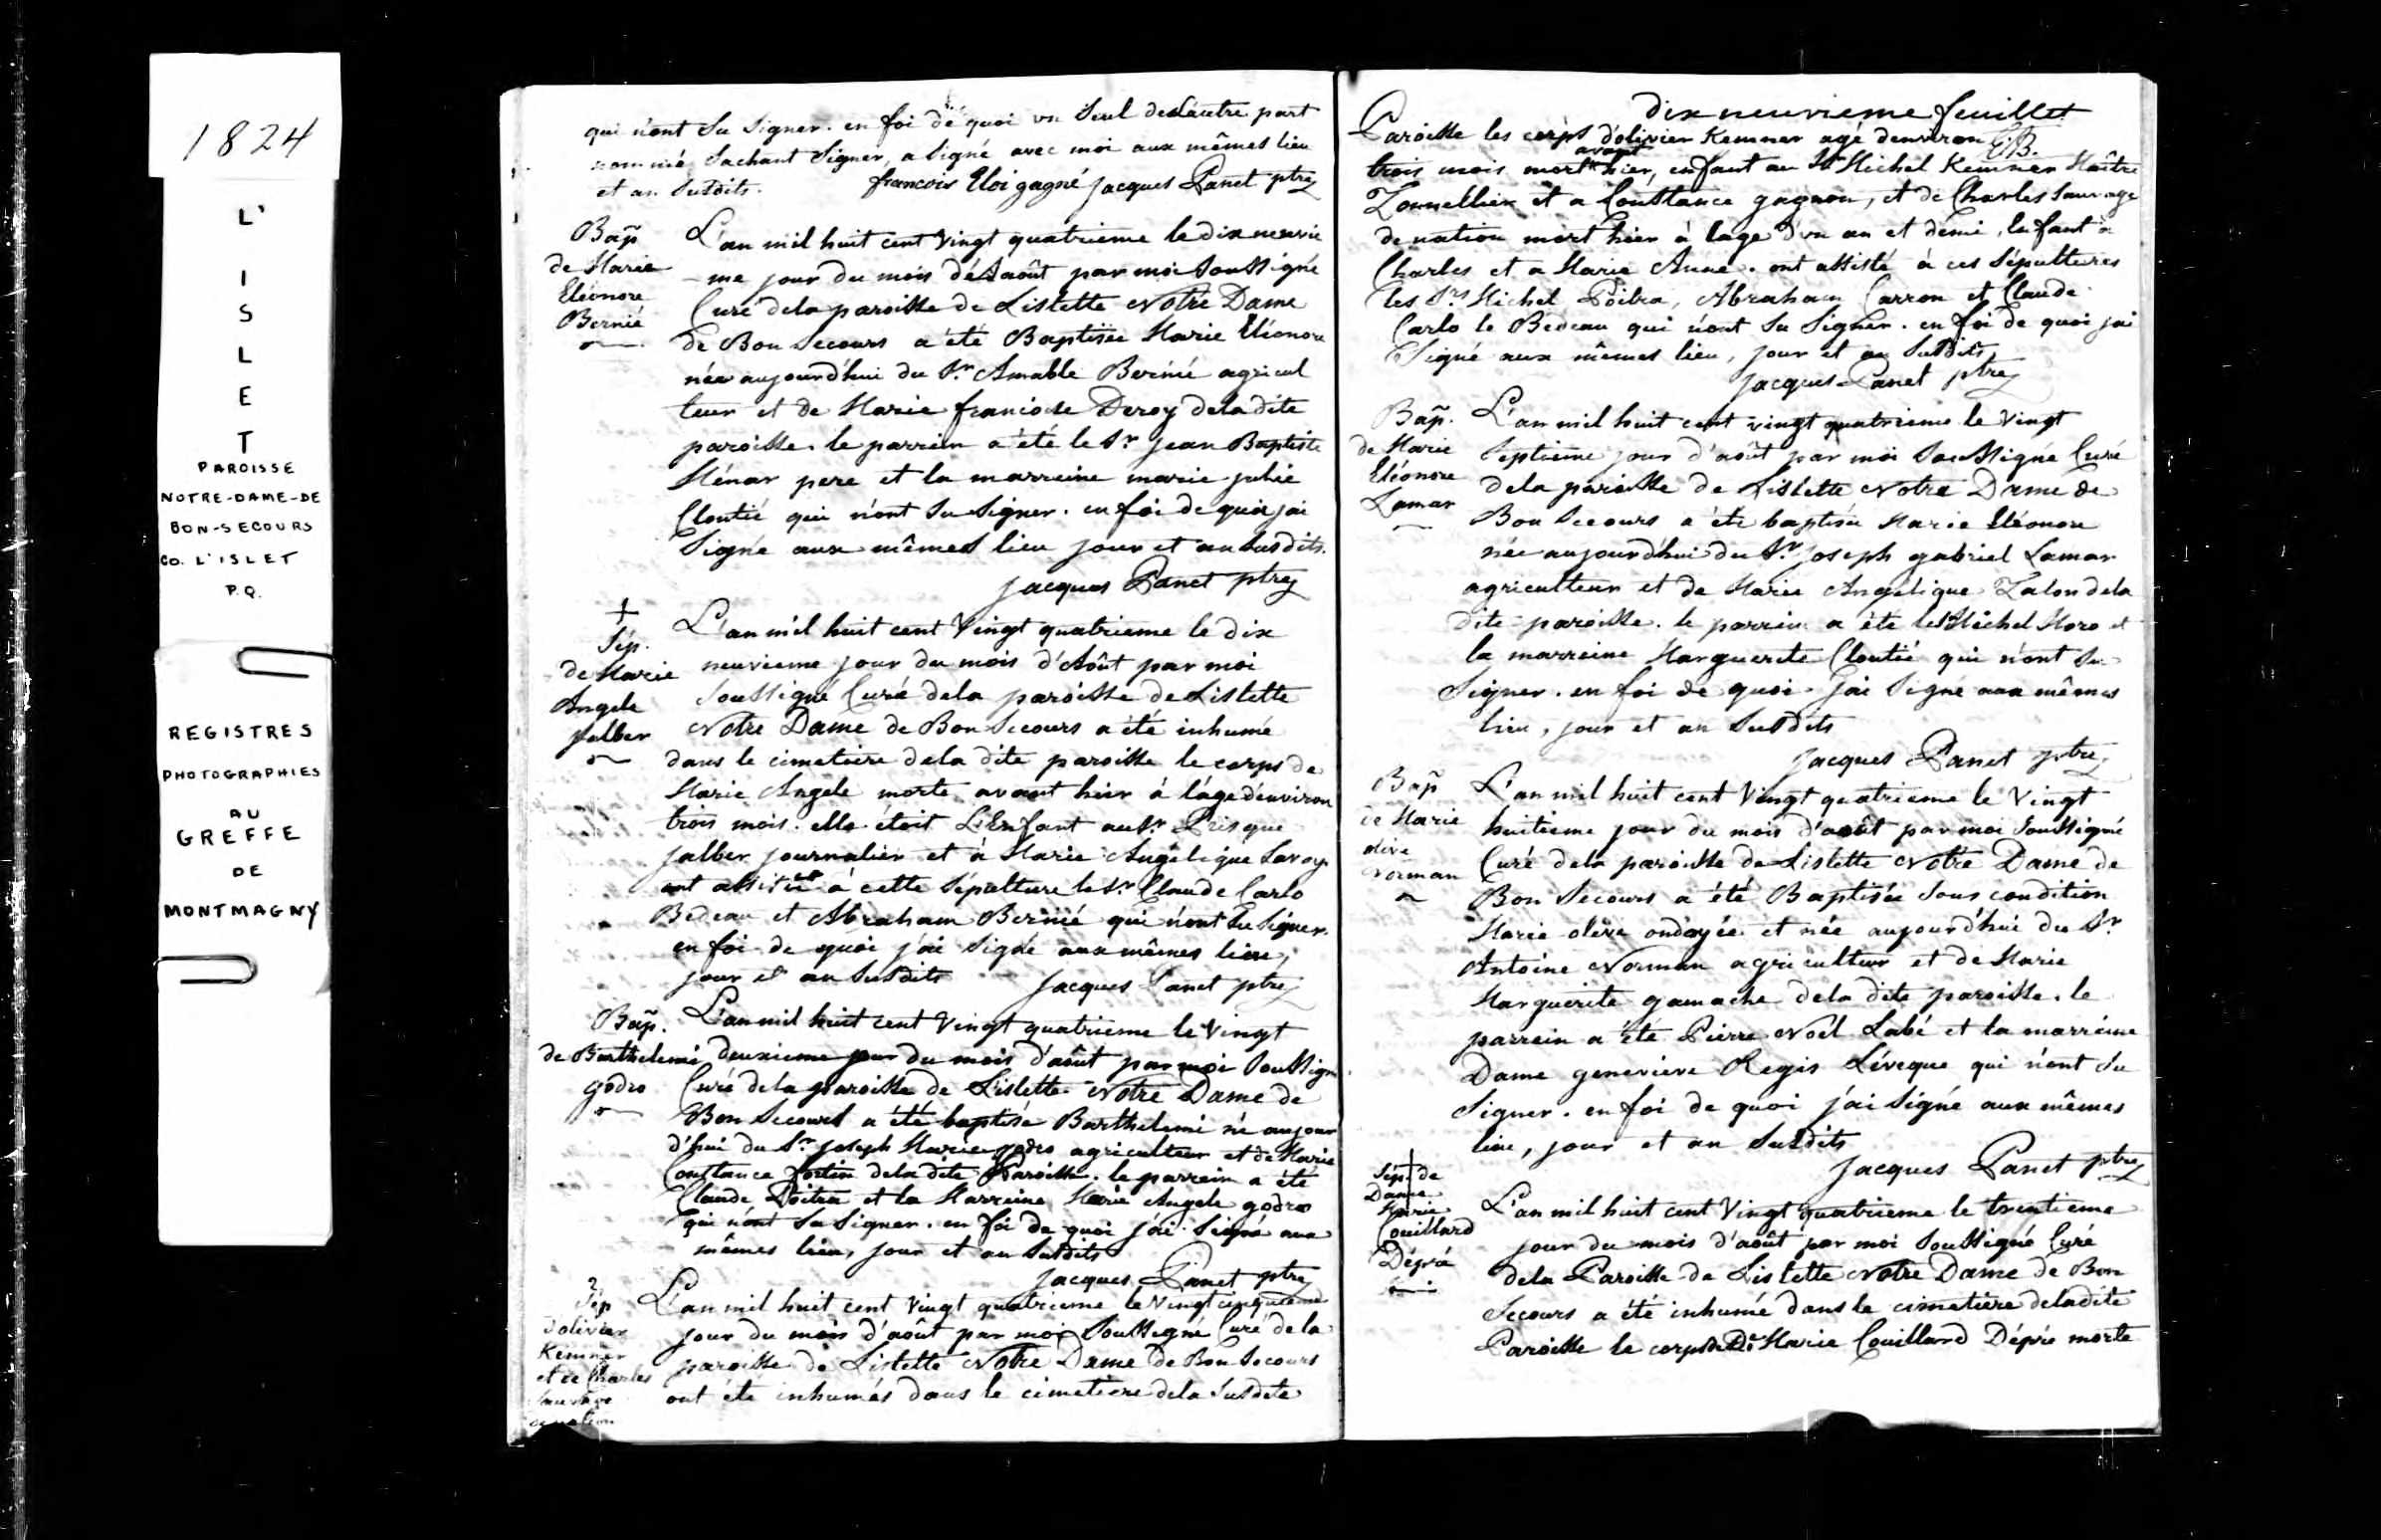 1824
L'
I
S
L
E
T
PAROISSE
NOTRE-DAME-DE
BON-SECOURS
CO. L'ISLET
P.Q.
REGISTRES
PHOTOGRAPHIES
AU
GREFFE
DE
MONTMAGNY
qui n'ont su signer. en foi de quoi un seul de l'autre part
nommé sachant signer, a signé avec moi aux mêmes lieu
et an susdits. francois Eloi gagné Jacques Panet ptre
Bap
de Marie
Eléonore
Bernié
L'an mil huit cent vingt quatrieme le dix neuvie
-me jour du mois d'août par moi soussigné
Curé dela paroisse de Lislette Notre Dame
de Bon Secours a été Baptisée Marie Eléonore
née aujourd'hui du Sr Amable Bernié agricul
teur et de Marie francoise Deroy dela dite
paroisse. le parrein a été le Sr Jean Baptiste
Ménar pere et la marreine marie julie
Cloutié qui n'ont su signer. en foi de quoi jai
signé aux mêmes lieu jour et an susdits.
Jacques Panet ptre
Sép.
de Marie
Angele
jalber
L'an mil huit cent vingt quatrieme le dix
neuvieme jour du mois d'Août par moi
soussigné Curé dela paroisse de Lislette
Notre Dame de Bon Secours a été inhumé
dans le cimetiere dela dite paroisse le corps de
Marie Angele morte avant hier à l'âge d'environ
trois mois. elle étoit L'Enfant au Sr Prisque
jalber journalier et à Marie Angélique Savoye
ont assisté à cette sépulture le Sr Claude Carlo
Bedeau et Abraham Bernié qui n'ont su signer.
en foi de quoi j'ai signé aux mêmes lieu,
jour et an susdits Jacques Panet ptre
Bap.
de Barthelemi
godro
L'an mil huit cent vingt quatrieme le vingt
deuxieme jour du mois d'août par moi soussigné
Curé dela paroisse de Lislette Notre Dame de
Bon Secours a été baptisé Barthelemi né aujour
d'hui du Sr joseph Marie godro agriculteur et de Marie
Constance fortin dela dite Paroisse. le parrein a été
Claude Poitra et la Marreine Marie Angele godro
qui n'ont su signer. en foi de quoi j'ai signé aux
mêmes lieu, jour et an susdits
Jacques Panet ptre
2
Sép
d'olivier
Kemner
et de Charles
sauvage
de nation
L'an mil huit cent vingt quatrieme le vingt cinquieme
jour du mois d'août par moi soussigné Curé dela
paroisse de Lislette Notre Dame de Bon Secours
ont été inhumés dans le cimetiere dela susdite
dix neuvieme feuillet
Paroisse les corps d'olivier Kemner agé denviron
trois mois mort avant hier, enfant au Sr Michel Kemner Maître
Tonnellier et a Constance gagnon, et de Charles sauvage
de nation mort hier à lage d'un an et demi, enfant à
Charles et a Marie Anne. ont assisté à ces sépultures
les Srs Michel Poitra, Abraham Carron et Claude
Carlo le Bedeau qui n'ont su signer. en foi de quoi jai
signé aux mêmes lieu, jour et an susdits
Jacques Panet ptre
Bap.
de Marie
Eléonore
Lamar
L'an mil huit cent vingt quatrieme le vingt
septieme jour d'août par moi soussigné Curé
dela paroisse de Lislette Notre Dame de
Bon Secours a été baptisée Marie Eléonore
née aujourd'hui du Sr joseph gabriel Lamar
agriculteur et de Marie Angélique Talon dela
dite paroisse. le parrein a été le Sr Michel Moro et
la marreine Marguerite Cloutié qui n'ont su
signer. en foi de quoi jai signé aux mêmes
lieu, jour et an susdits
Jacques Panet ptre
Bap
de Marie
olive
Norman
L'an mil huit cent vingt quatrieme le vingt
huitieme jour du mois d'août par moi soussigné
Curé dela paroisse de Lislette Notre Dame de
Bon Secours a été Baptisée sous condition
Marie olive ondoyée et née aujourd'hui du Sr
Antoine Norman agriculteur et de Marie
Marguerite gamache dela dite paroisse. le
parrein a été Pierre Noël Labé et la marreine
Dame genevieve Regis Lévèque qui n'ont su
signer. en foi de quoi j'ai signé aux mêmes
lieu, jour et an susdits
Jacques Panet ptre
Sép. de
Dame
Marie
Couillard
Dépré
L'an mil huit cent vingt quatrieme le trentieme
jour du mois d'août par moi soussigné Curé
dela Paroisse de Lislette Notre Dame de Bon
Secours a été inhumé dans le cimetiere dela dite
Paroisse le corps de De Marie Couillard Dépré morte